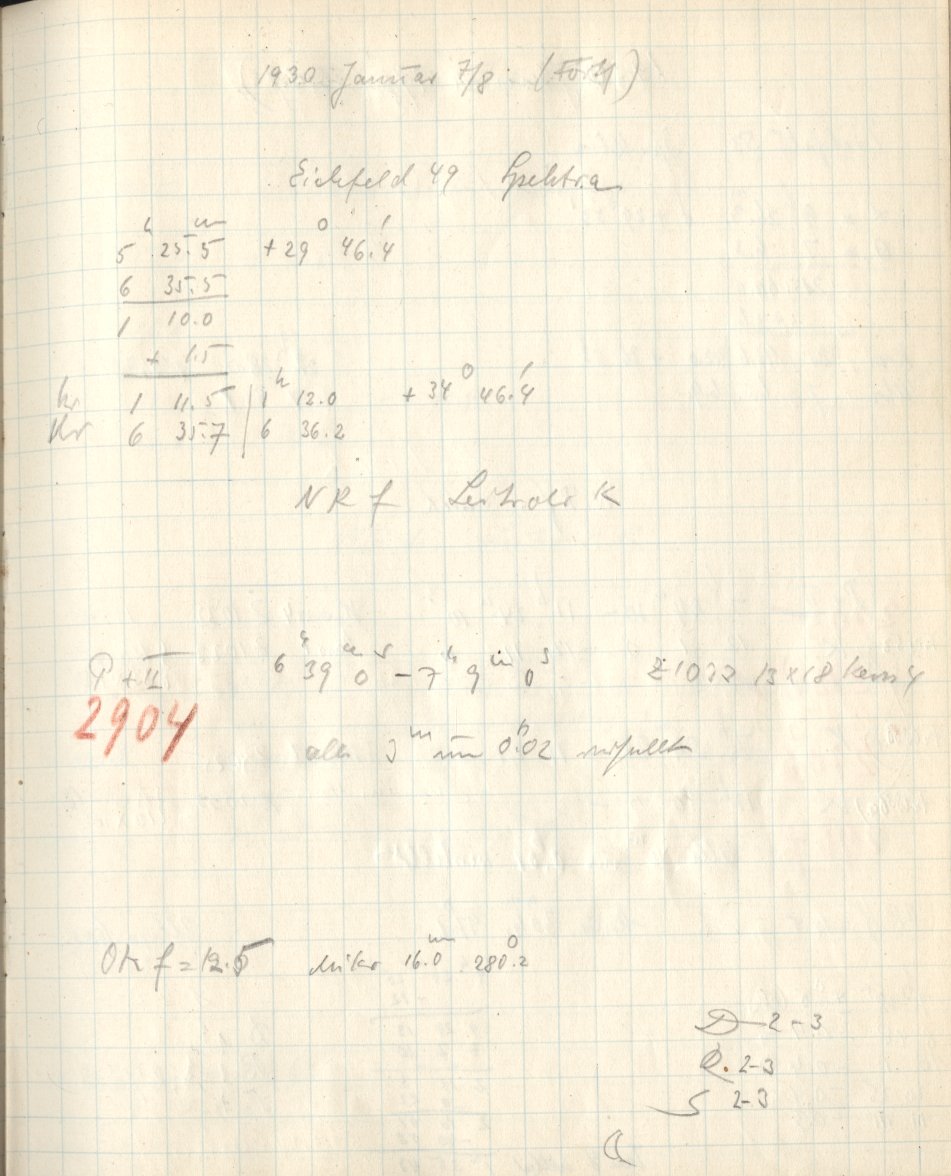 1930 Januar 7/8 (Forts)
Eichfeld 49 Spektra
5 h 25.5 m + 29 ° 46.4 '
6 35.5
1 10.0
+ 1.5
1 11.5 | 1 h 12.0 + 34 ° 46.4 '
6 35.7 | 6 36.2
NR f
P + II 6 h 39 m 0 s - 7 h 9 m 0 s Z 1077 13 x 18
2904
alle 3 m um 0.02
f = 12.5 Mikr 16.0 m 280.2 °
D 2-3
R. 2-3
S 2-3